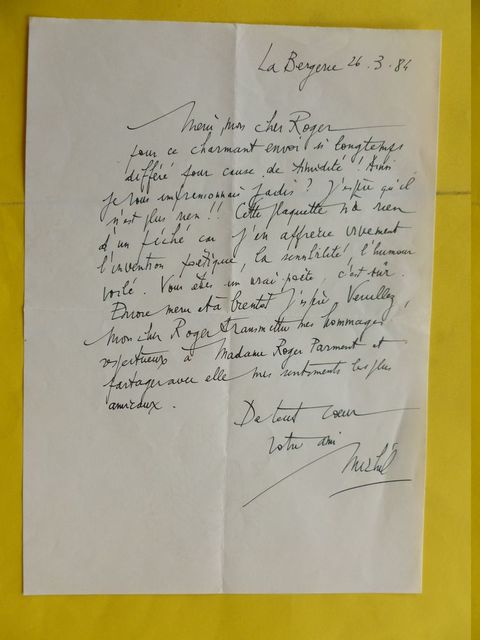 La Bergerie 26.3.84
Merci, mon cher Roger
pour ce charmant envoi si longtemps
différé pour cause de timidité ! Ainsi
je vous impressionnais jadis ? J'espère qu'il
n'est plus rien !! Cette plaquette n'a rien
d'un péché car j'en apprécie vivement
l'invention poëtique, la sensibilité, l'humour
voilé. Vous êtes un vrai poète, c'est sûr.
Encore merci et à bientôt j'espère. Veuillez,
mon cher Roger transmettre mes hommages
respectueux à Madame Roger Parment et
partager avec elle mes sentiments les plus
amicaux.
De tout cœur
votre ami
Michel